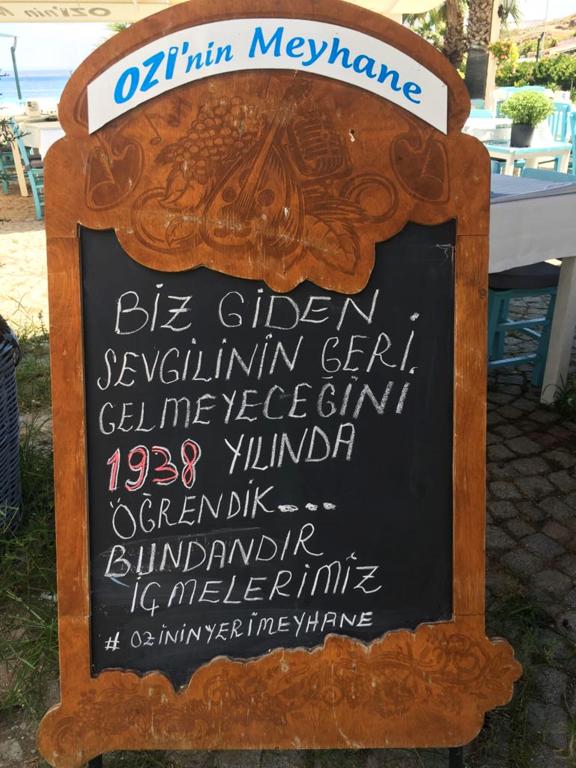 OZİ'nin
OZİ'nin Meyhane
BİZ GİDEN
SEVGİLİNİN GERİ
GELMEYECEĞİNİ
1938 YILINDA
ÖĞRENDİK....
BUNDANDIR
İÇMELERİMİZ
# OZİNİNYERİMEYHANE